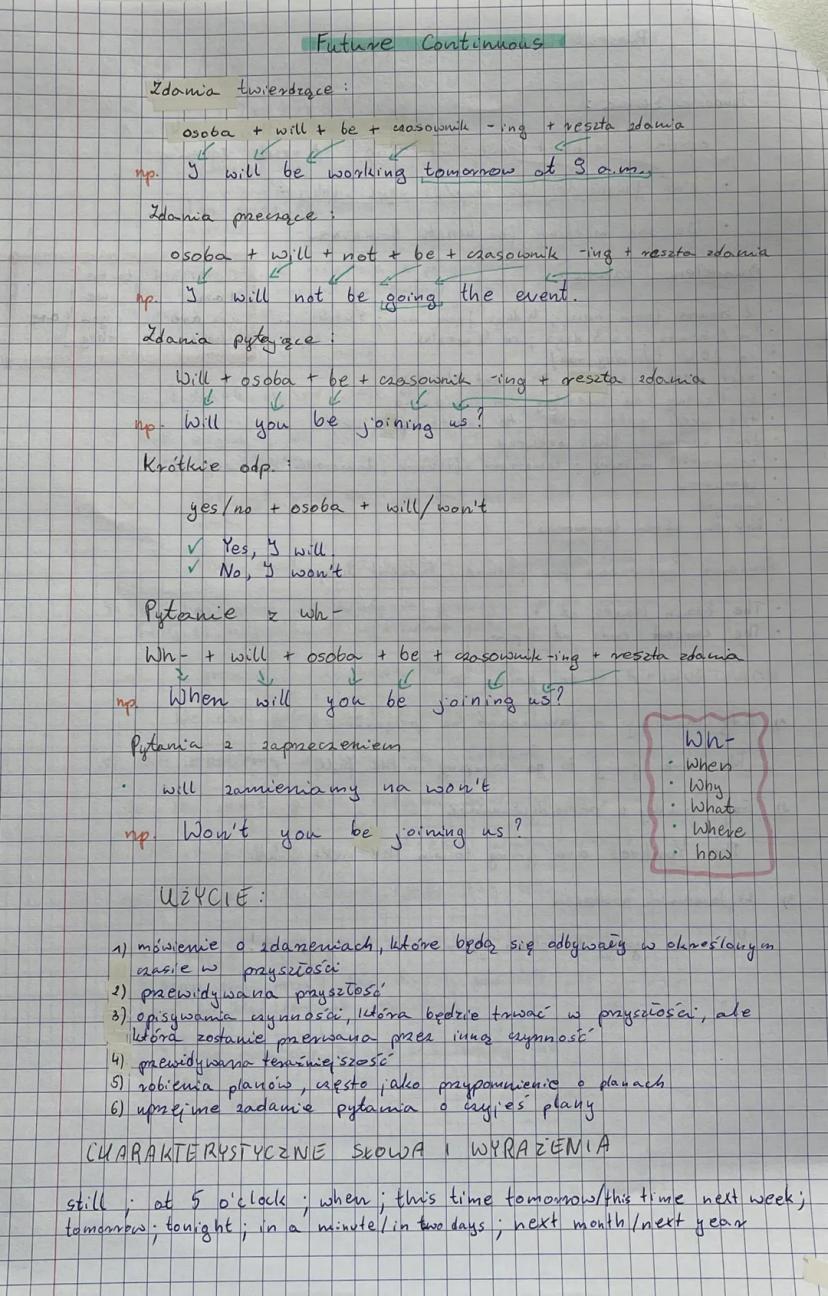 Future Continuous
Zdania twierdzące :
osoba + will + be + czasownik -ing + reszta zdania
np. I will be working tomorrow at 9 a.m.
Zdania przeczące :
osoba + will + not + be + czasownik -ing + reszta zdania
np. I will not be going the event.
Zdania pytające :
Will + osoba + be + czasownik -ing + reszta zdania
np. Will you be joining us?
Krótkie odp. :
yes/no + osoba + will/won't
✓ Yes, I will.
✓ No, I won't
Pytanie z wh-
Wh- + will + osoba + be + czasownik -ing + reszta zdania
np. When will you be joining us?
Pytania z zaprzeczeniem
• will zamieniamy na won't
np. Won't you be joining us?
Wh-
• When
• Why
• What
• Where
• how
UŻYCIE :
1) mówienie o zdarzeniach, które będą się odbywały w określonym
czasie w przyszłości
2) przewidywana przyszłość
3) opisywania czynności, która będzie trwać w przyszłości, ale
która zostanie przerwana przez inną czynność
4) przewidywana teraźniejszość
5) robienia planów, często jako przypomnienie o planach
6) uprzejme zadanie pytania o czyjeś plany
CHARAKTERYSTYCZNE SŁOWA I WYRAŻENIA
still ; at 5 o'clock ; when ; this time tomorrow/this time next week ;
tomorrow ; tonight ; in a minute/in two days ; next month/next year